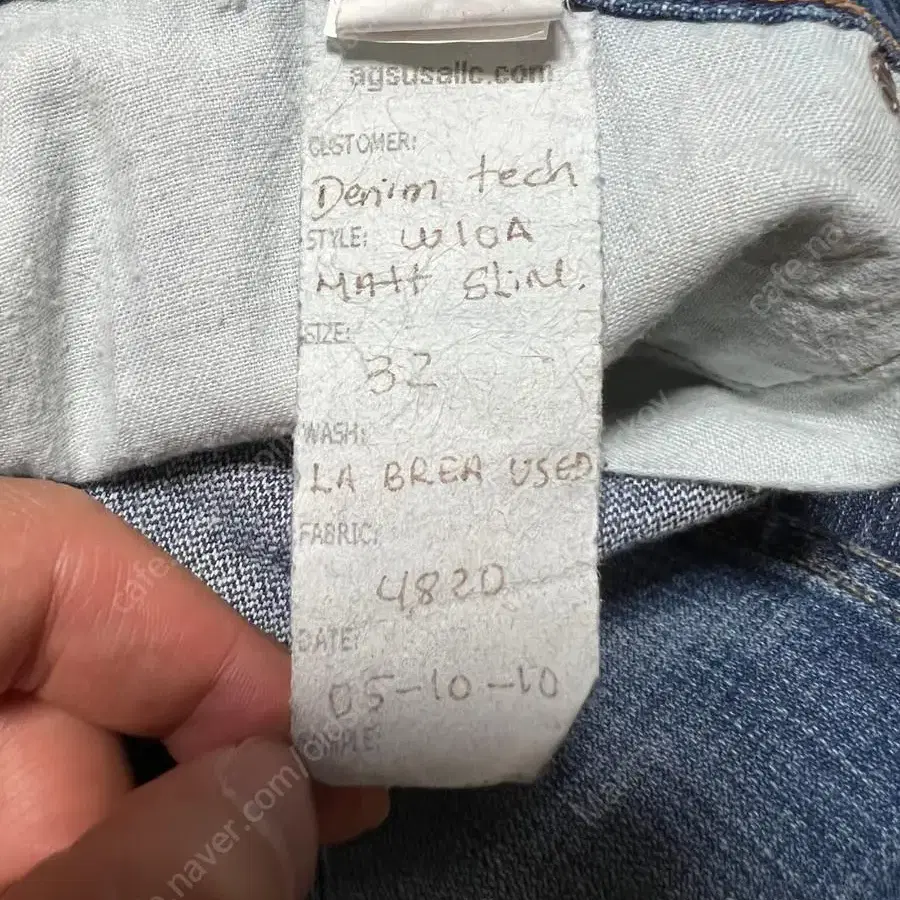 agsusallc.com
CUSTOMER:
Denim tech
STYLE: W10A
MAtt SLiM.
SIZE:
32
WASH:
LA BREA USED
FABRIC:
4820
DATE:
05-10-10